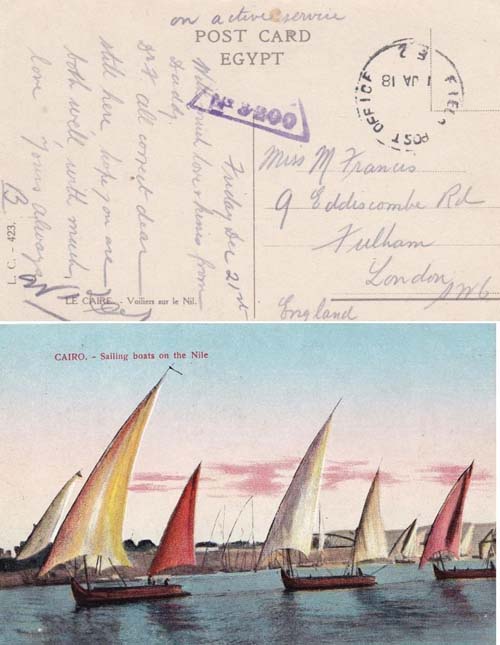 on active service
POST CARD
EGYPT
FIELD POST OFFICE
1 JA 18
Friday Dec 21st
Dr F all correct dear
still here hope you are
both well, with much
love Yours always
B
With much love & kisses from
Daddy
Miss M Francis
9 Eddiscombe Rd
Fulham
London
SW6
England
L. C. - 423.
LE CAIRE. - Voiliers sur le Nil.
CAIRO. - Sailing boats on the Nile